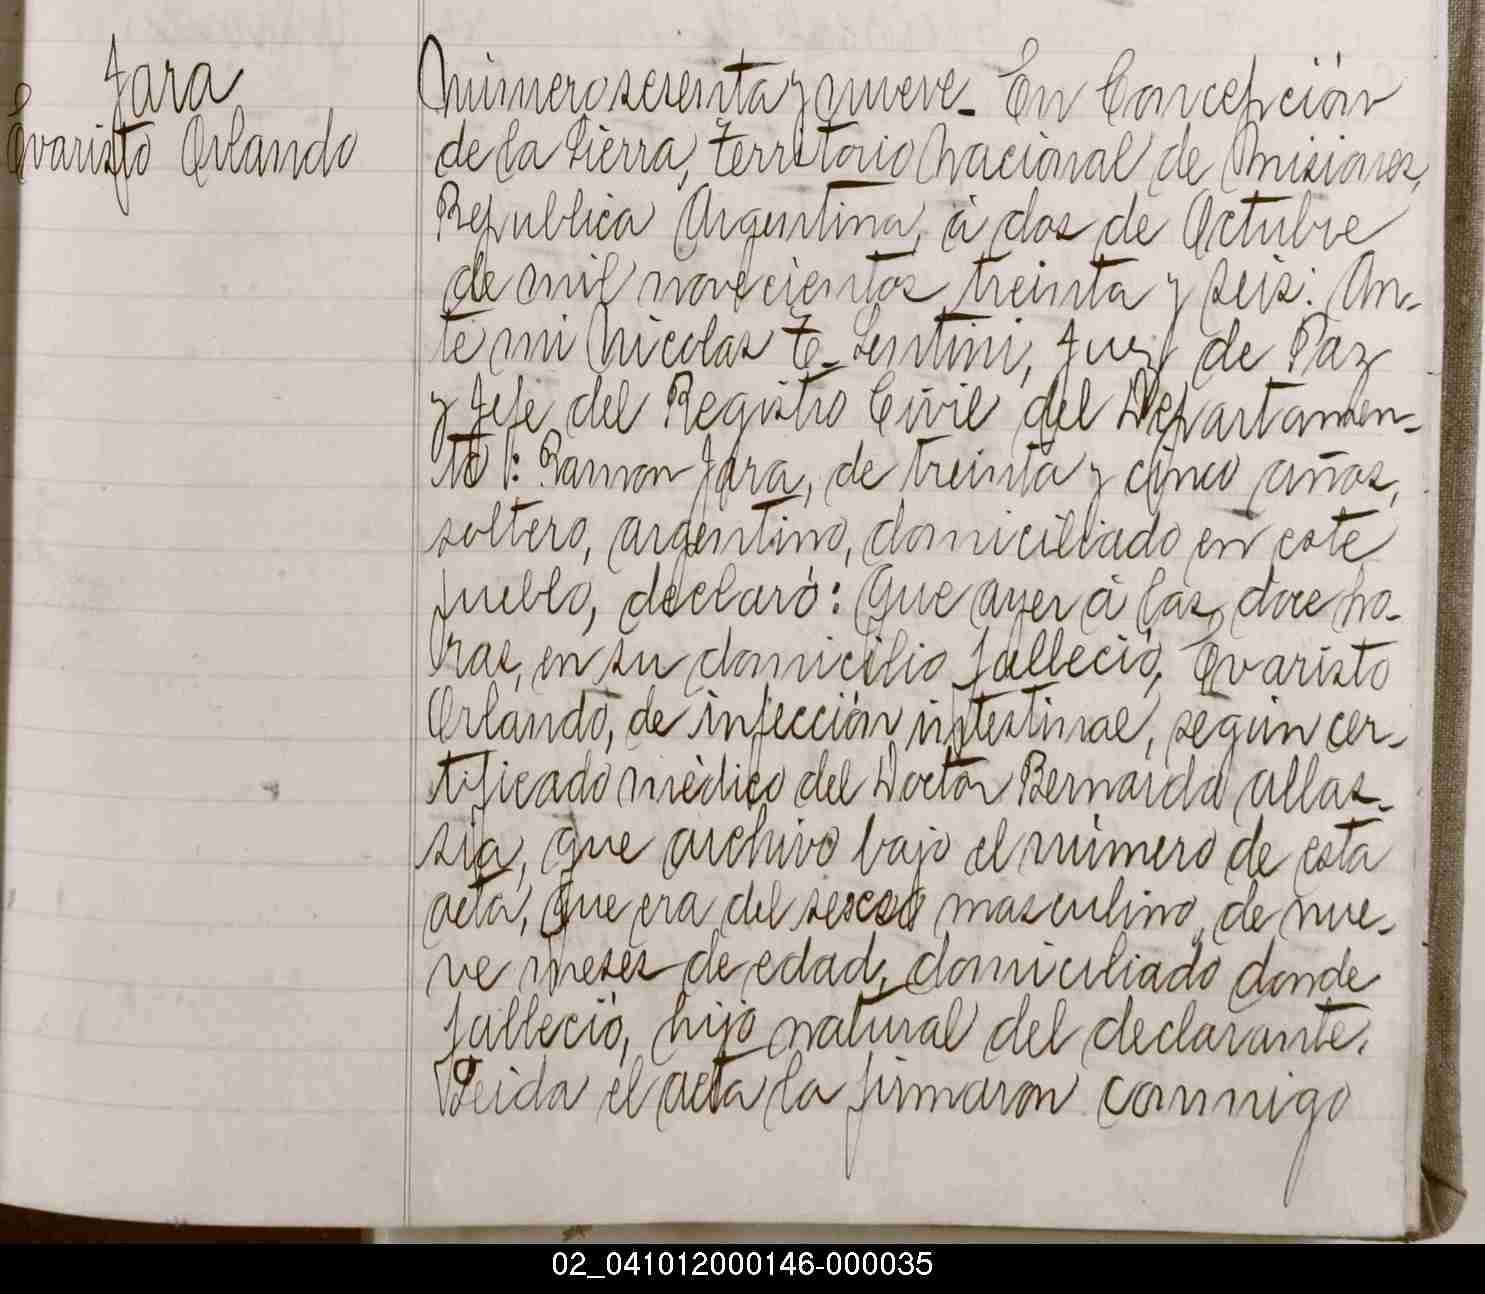 Jara
Evaristo Orlando
Número sesenta y nueve_ En Concepción
de la Sierra, territorio Nacional de Misiones,
Republica Argentina, à dos de Octubre
de mil novecientos treinta y seis: An-
te mi Nicolas E. Sentini, Juez de Paz
y Jefe del Registro Civil del Departamen-
to 1: Ramon Jara, de treinta y cinco años,
soltero, argentino, domiciliado en este
pueblo, declaró: Que ayer à las doce ho-
ras, en su domicilio falleció, Evaristo
Orlando, de infección intestinal, según cer-
tificado mèdico del Doctor Bernardo Allas-
sia, que archivo bajo el número de esta
acta, Que era del sexso masculino, de nue-
ve meses de edad, domiciliado donde
falleció, hijo natural del declarante.
Leida el acta la firmaron conmigo
02_041012000146-000035